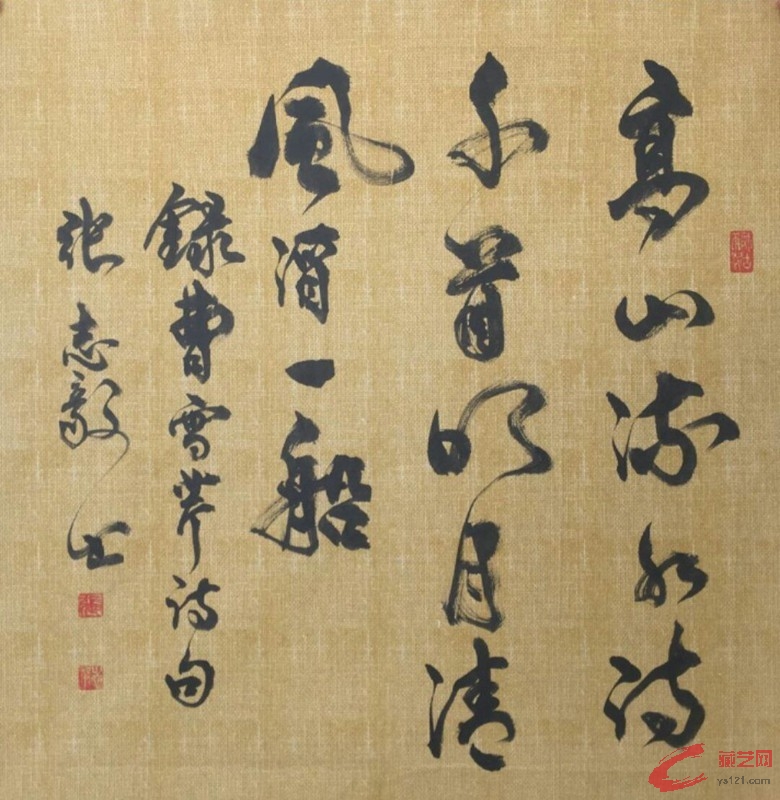 高山流水诗
千首明月清
風酒一船
録曹雪芹诗句
张志毅书
藏艺网
ys121.com